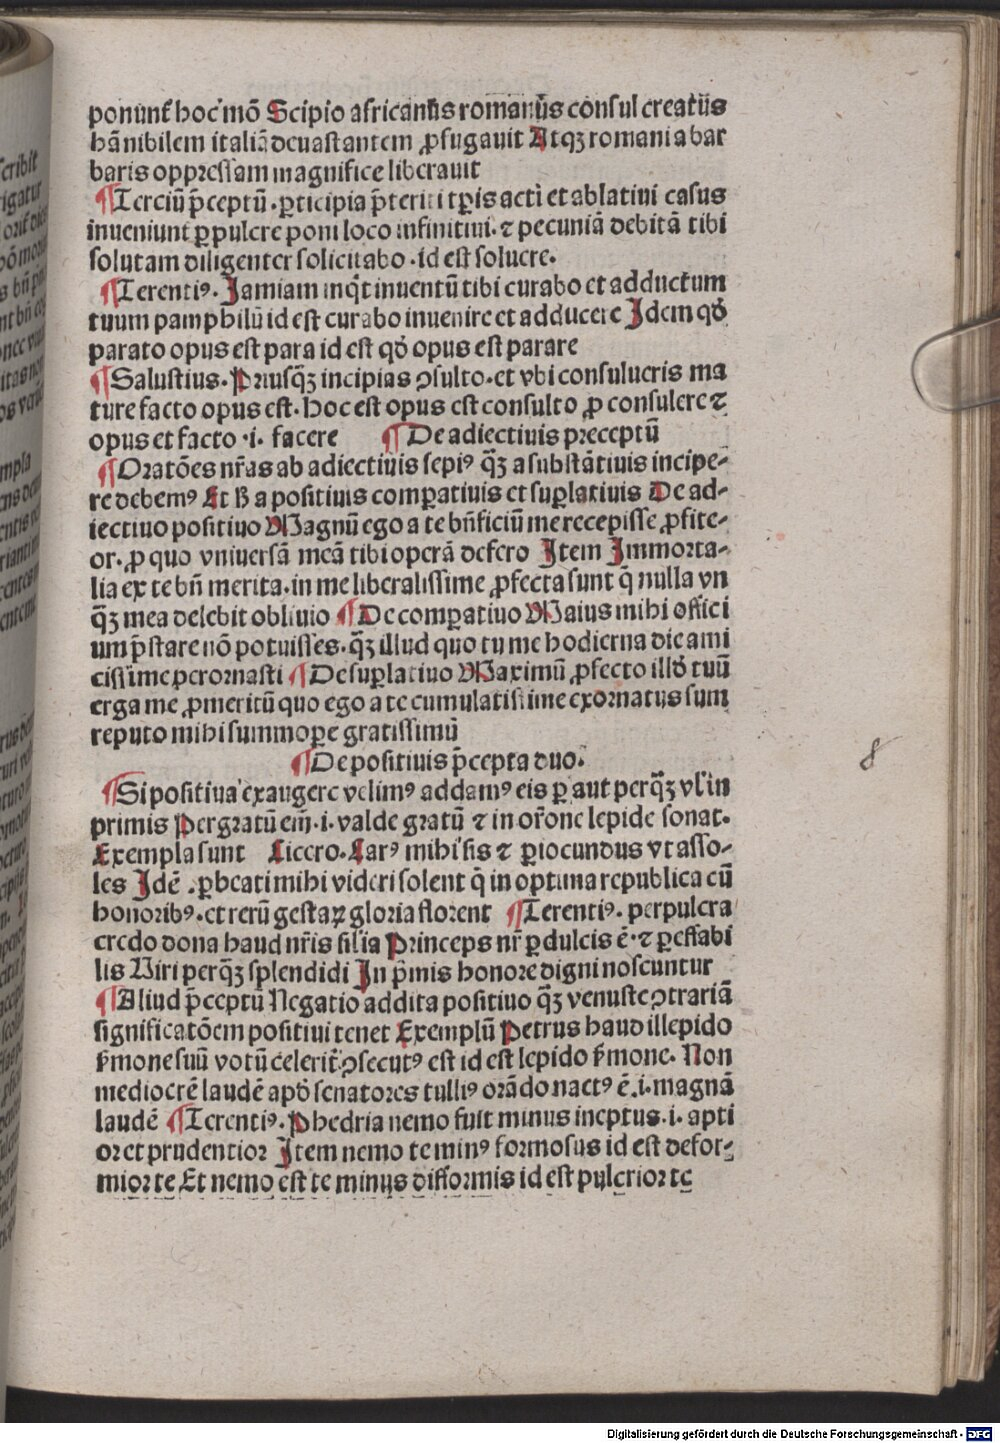 ponunt̃ hoc mõ Scipio africanus romanus consul creatus
hãnibilem italiã deuastantem ꝓfugauit Atqꝫ romani a bar
baris oppressam magnifice liberauit
¶Terciũ p̃ceptũ. ꝑticipia p̃teriti tꝑis acti et ablatiui casus
inueniunt ꝑpulcre poni loco infinitiui. ⁊ pecuniã debitã tibi
solutam diligenter solicitabo. id est soluere.
¶Terentiꝰ. Jamiam inq̇t inuentũ tibi curabo et adductum
tuum pamphilũ id est curabo inuenire et adducere Jdem qð
parato opus est para id est qð opus est parare
¶Salustius. Priusqꝫ̃ incipias ↄsulto. et vbi consulueris ma
ture facto opus est. hoc est opus est consulto ꝓ consulere ⁊
opus et facto .i. facere ¶De adiectiuis preceptũ
¶Oratões nr̃as ab adiectiuis sepiꝰ qꝫ̃ a substãtiuis incipe⸗
re debemꝰ Et ß a positiuis comꝑatiuis et suꝑlatiuis De ad⸗
iectiuo positiuo Magnũ ego a te bñficiũ me recepisse ꝓfite⸗
or. ꝓ quo vniuersã meã tibi operã defero Jtem Jmmorta⸗
lia ex te bñ merita. in me liberalissime ꝓfecta sunt q̃ nulla vn
qꝫ̃ mea delebit obliuio ¶De comꝑatiuo Maius mihi offici
um p̃stare nõ potuisses. qꝫ̃ illud quo tu me hodierna die ami
cissime perornasti ¶De suꝑlatiuo Maximũ ꝓfecto illð tuũ
erga me ꝓmeritũ quo ego a te cumulatissime exornatus sum
reputo mihi summoꝑe gratissimũ
¶De positiuis p̃cepta duo.
¶Si positiua exaugere velimꝰ addamꝰ eis ꝑ aut perqꝫ̃ vl̃ in
primis Pergratũ em̃ .i. valde gratũ ⁊ in or̃one lepide sonat.
Exempla sunt Cicero. Carꝰ mihi sis ⁊ ꝑiocundus vt asso⸗
les Jdẽ . ꝑbeati mihi videri solent q̃ in optima republica cũ
honoribꝰ. et rerũ gestaꝝ gloria florent ¶Terentiꝰ. perpulcra
credo dona haud nr̃is silĩa Princeps nr̃ ꝑdulcis ẽ. ⁊ ꝑeffabi
lis Viri perqꝫ̃ splendidi Jn p̃mis honore digni noscuntur
¶Aliud p̃ceptũ Negatio addita positiuo qꝫ̃ venuste ↄtrariã
significatõem positiui tenet Exemplũ Petrus haud illepido
ẜmone suũ votũ celerit̃ ↄsecutꝰ est id est lepido ẜmone. Non
mediocrẽ laudẽ apð senatores tulliꝰ orãdo nactꝰ ẽ .i. magnã
laudẽ ¶Terentiꝰ. Phedria nemo fuit minus ineptus .i. apti
or et prudentior Jtem nemo te minꝰ formosus id est defor⸗
mior te Et nemo est te minus difformis id est pulcrior te
8
Digitalisierung gefördert durch die Deutsche Forschungsgemeinschaft - DFG